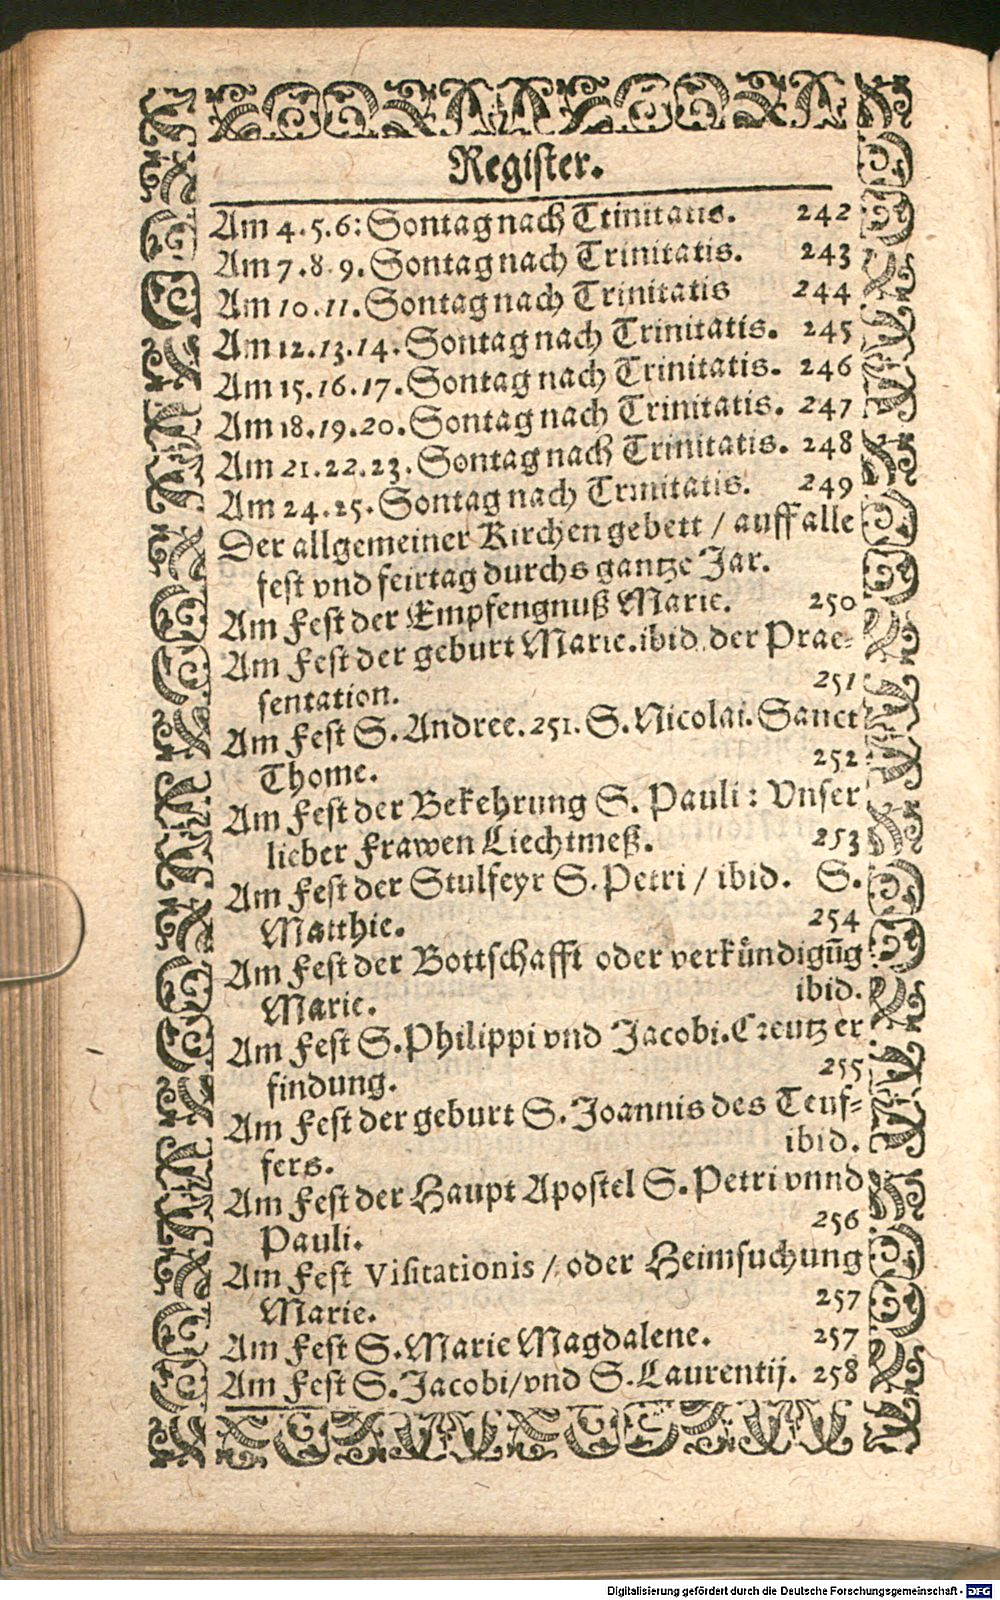 Register.
Am 4.5.6: Sontag nach Trinitatis. 242
Am 7.8.9. Sontag nach Trinitatis. 243
Am 10.11. Sontag nach Trinitatis 244
Am 12.13.14. Sontag nach Trinitatis. 245
Am 15.16.17. Sontag nach Trinitatis. 246
Am 18.19.20. Sontag nach Trinitatis. 247
Am 21.22.23. Sontag nach Trinitatis. 248
Am 24.25. Sontag nach Trinitatis. 249
Der allgemeiner Kirchen gebett / auff alle
fest vnd feirtag durchs gantze Jar.
Am Fest der Empfengnuß Marie. 250
Am Fest der geburt Marie. ibid. der Prae-
sentation. 251
Am Fest S. Andree. 251. S. Nicolai. Sanct
Thome. 252
Am Fest der Bekehrung S. Pauli: Vnser
lieber Frawen Liechtmeß. 253
Am Fest der Stulfeyr S. Petri / ibid. S.
Matthie. 254
Am Fest der Bottschafft oder verkündigūg
Marie. ibid.
Am Fest S. Philippi vnd Jacobi. Creutz er
findung. 255
Am Fest der geburt S. Joannis des Teuf-
fers. ibid.
Am Fest der Haupt Apostel S. Petri vnnd
Pauli. 256
Am Fest Visitationis / oder Heimsuchung
Marie. 257
Am Fest S. Marie Magdalene. 257
Am Fest S. Jacobi / vnd S. Laurentij. 258
Digitalisierung gefördert durch die Deutsche Forschungsgemeinschaft - DFG